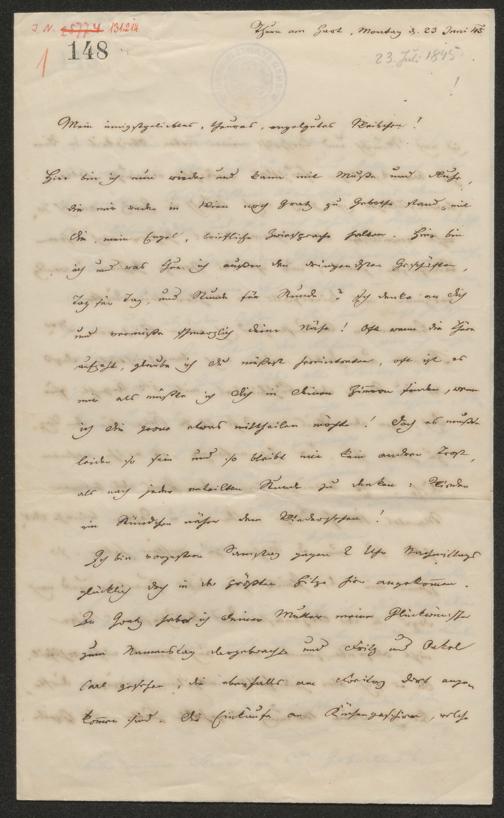 I. N. 131214
148
1
Thurn am Hart, Montag d. 23 Juni 45
23. Juli 1845
!
Mein innigstgeliebtes, theures, engelgutes Weibchen!
Hier bin ich nun wieder und kann mit Muße und Ruhe,
die mir weder in Wien noch Gratz zu Gebothe stand, mit
dir, mein Engel, briefliche Zwiesprache halten. Hier bin
ich und was thue ich außer den dringendsten Geschäften,
Tag für Tag, und Stunde für Stunde? Ich denke an dich
und vermisse schmerzlich deine Nähe! Oft wenn die Thüre
aufgeht, glaube ich du müßest hereintreten, oft ist es
mir als müßte ich dich in deinem Zimmer finden, wenn
ich dir gerne etwas mittheilen möchte! Doch es mußte
leider so sein und so bleibt mir kein anderer Trost,
als nach jeder enteilten Stunde zu denken: Wieder
ein Stündchen näher dem Wiedersehen!
Ich bin vorgestern Samstag gegen 2 Uhr Nachmittags
glücklich doch in der größten Hitze hier angekommen.
In Gratz habe ich deiner Mutter meine Glückwünsche
zum Namenstag dargebracht und Fritz und Onkel
Carl gesehen, die ebenfalls am Freitag dort ange-
kommen sind. Die Einkäufe an Küchengeschirr, welche